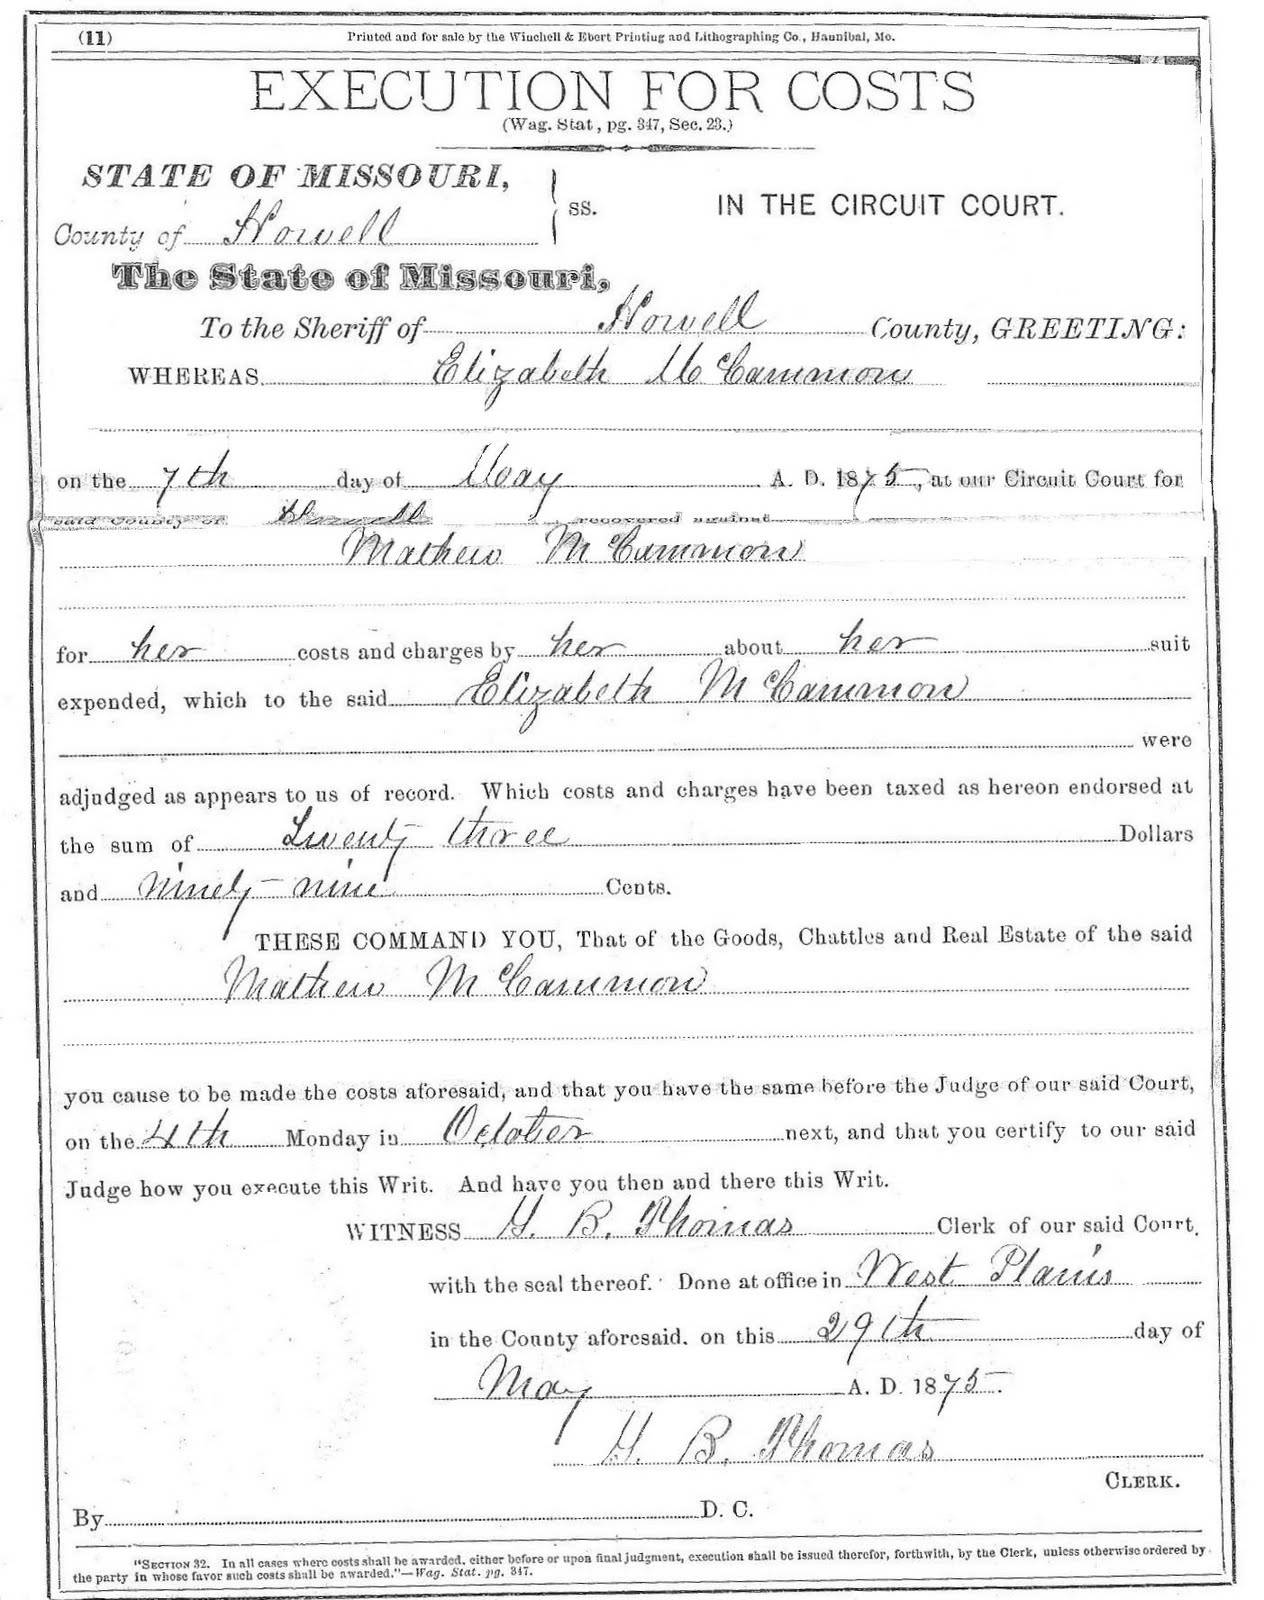 (11)
Printed and for sale by the Winchell & Ebert Printing and Lithographing Co., Hannibal, Mo.
EXECUTION FOR COSTS
(Wag. Stat, pg. 347, Sec. 23.)
STATE OF MISSOURI,
ss.
IN THE CIRCUIT COURT.
County of Howell
The State of Missouri,
To the Sheriff of Howell County, GREETING:
WHEREAS Elizabeth McCammon
on the 7th day of May A. D. 1875, at our Circuit Court for
said County of Howell recovered against
Mathew McCammon
for her costs and charges by her about her suit
expended, which to the said Elizabeth McCammon
were
adjudged as appears to us of record. Which costs and charges have been taxed as hereon endorsed at
the sum of Twenty three Dollars
and ninety-nine Cents.
THESE COMMAND YOU, That of the Goods, Chattles and Real Estate of the said
Mathew McCammon
you cause to be made the costs aforesaid, and that you have the same before the Judge of our said Court,
on the 4th Monday in October next, and that you certify to our said
Judge how you execute this Writ. And have you then and there this Writ.
WITNESS H. B. Thomas Clerk of our said Court,
with the seal thereof. Done at office in West Plains
in the County aforesaid. on this 29th day of
May A. D. 1875.
H. B. Thomas
CLERK.
By D. C.
"SECTION 32. In all cases where costs shall be awarded, either before or upon final judgment, execution shall be issued therefor, forthwith, by the Clerk, unless otherwise ordered by
the party in whose favor such costs shall be awarded."—Wag. Stat. pg. 347.